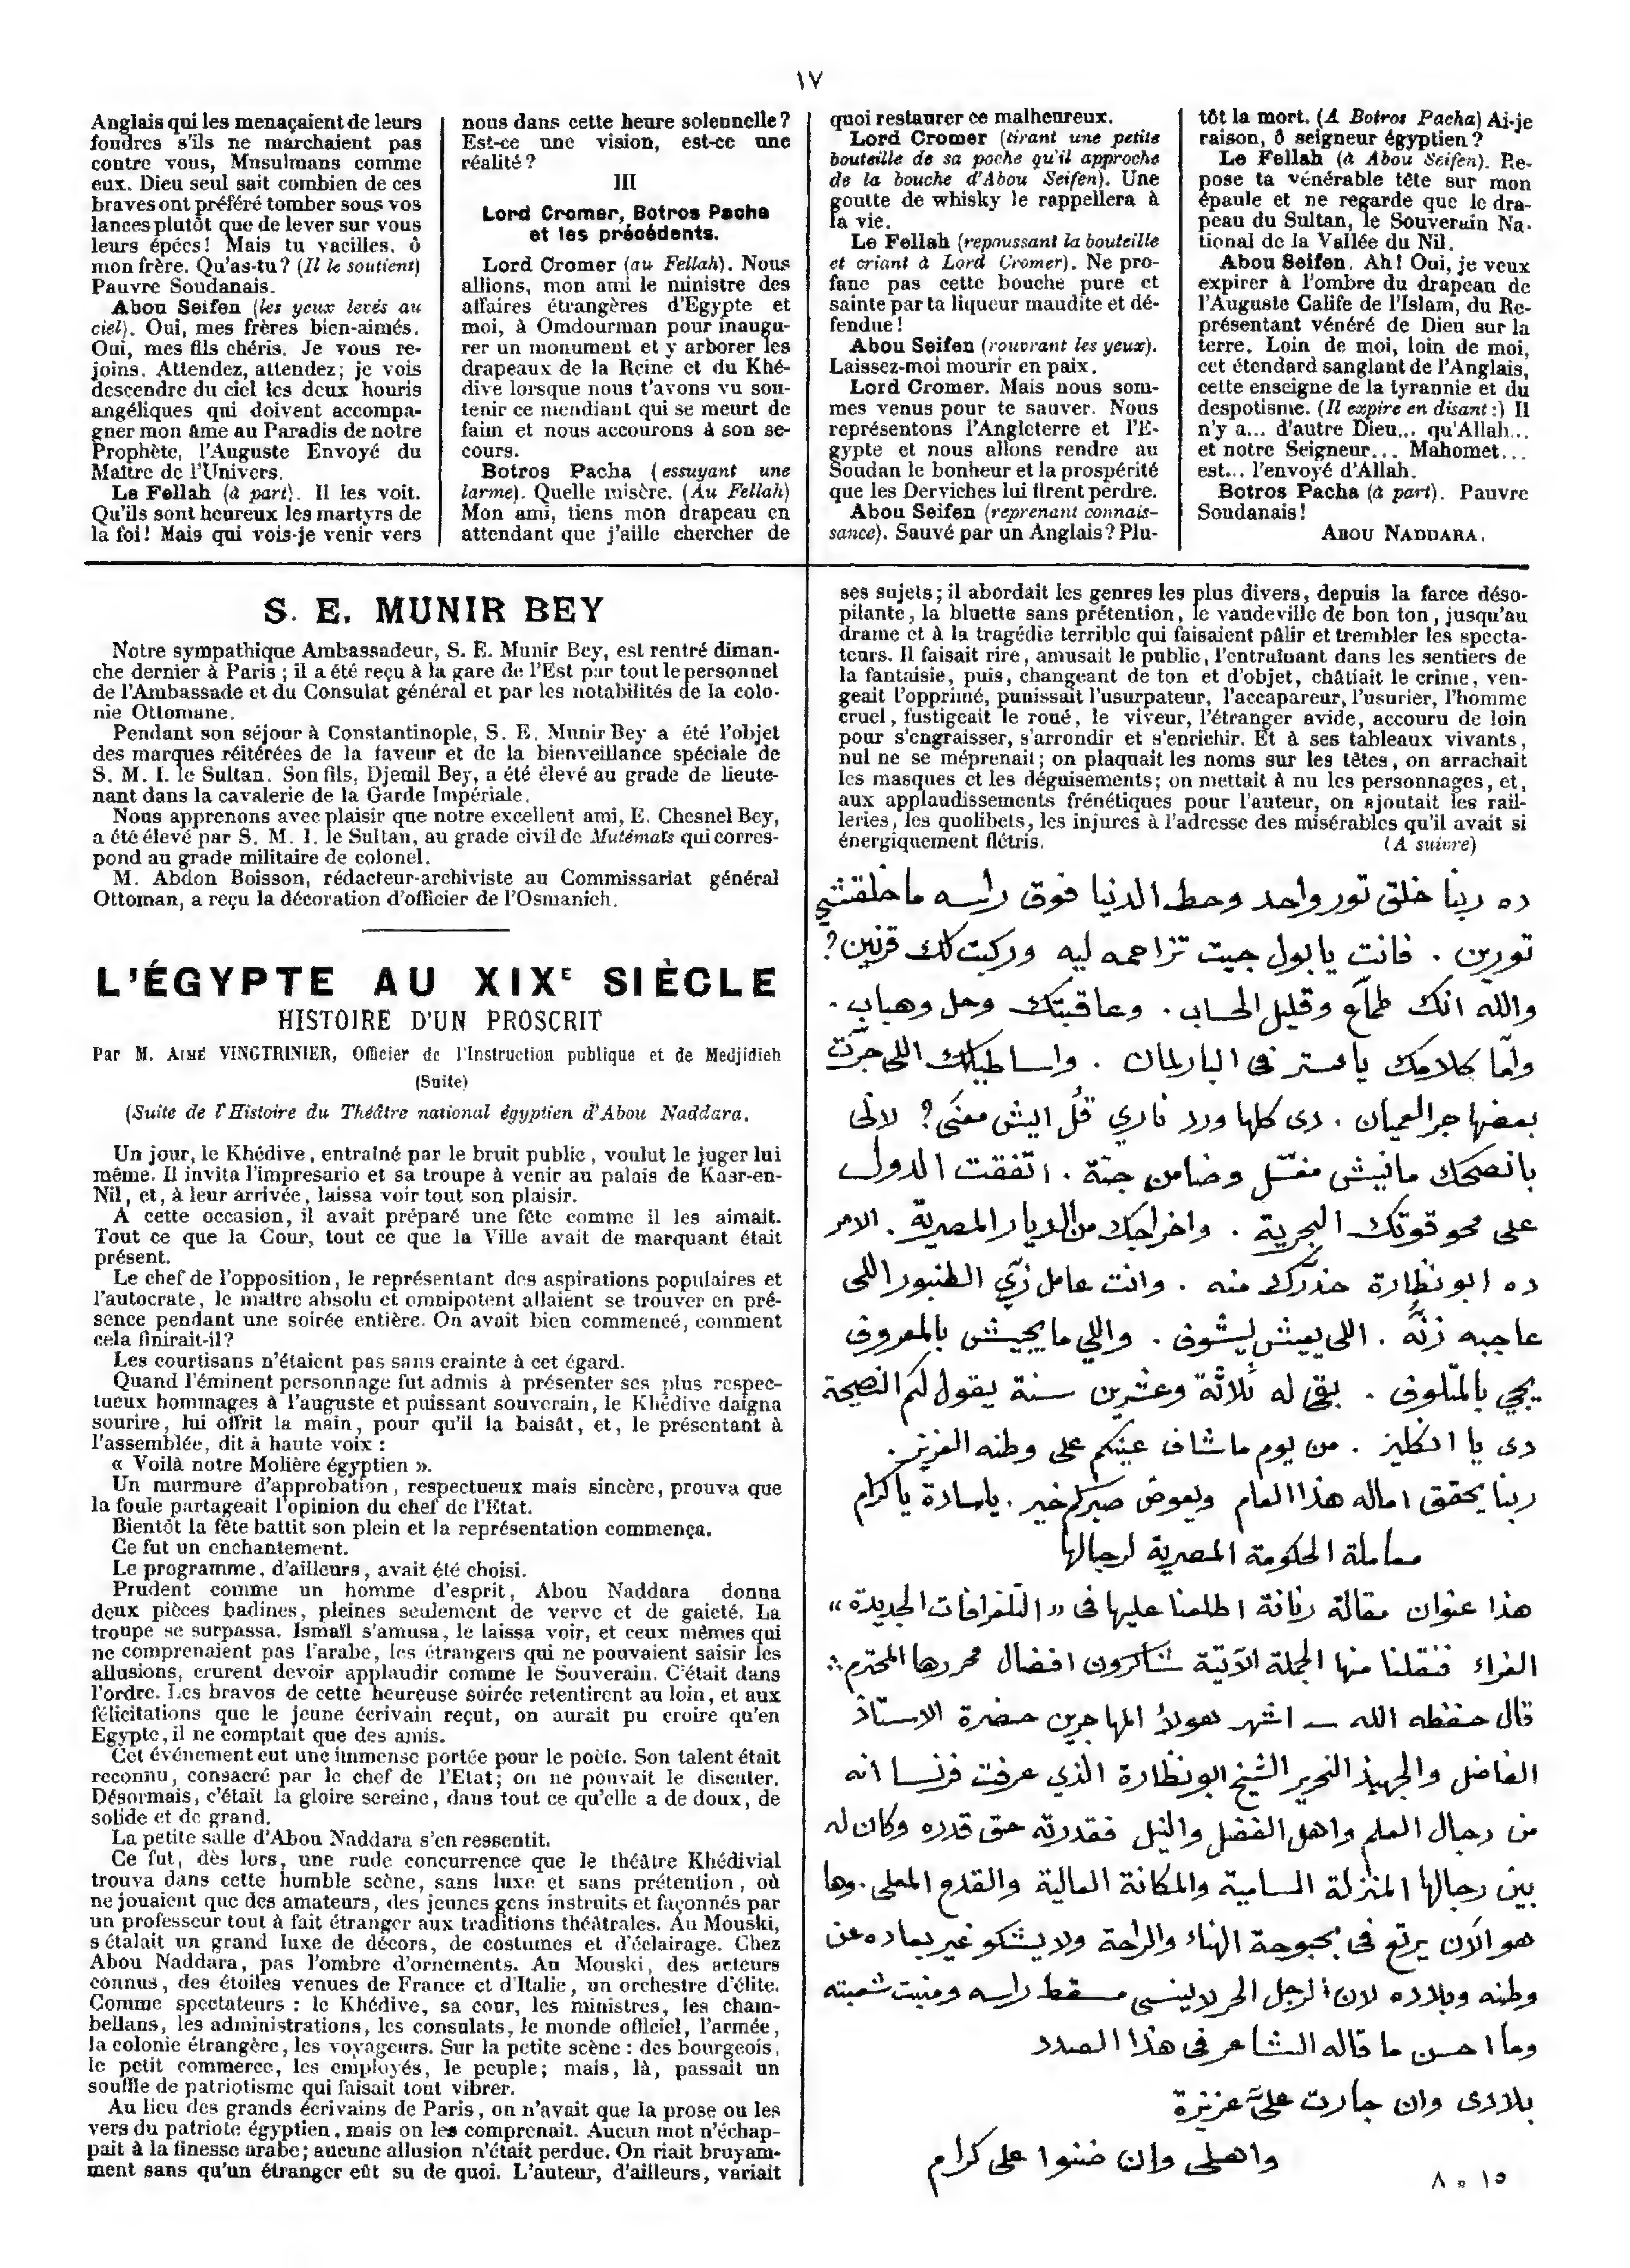 ١٧
Anglais qui les menaçaient de leurs
foudres s'ils ne marchaient pas
contre vous, Mnsulmans comme
eux. Dieu seul sait combien de ces
braves ont préféré tomber sous vos
lances plutôt que de lever sur vous
leurs épées! Mais tu vacilles, ô
mon frère. Qu'as-tu? (Il le soutient)
Pauvre Soudanais.
Abou Seifen (les yeux levés au
ciel). Oui, mes frères bien-aimés.
Oui, mes fils chéris. Je vous re-
joins. Attendez, attendez; je vois
descendre du ciel les deux houris
angéliques qui doivent accompa-
gner mon âme au Paradis de notre
Prophète, l'Auguste Envoyé du
Maître de l'Univers.
Le Fellah (à part). Il les voit.
Qu'ils sont heureux les martyrs de
la foi! Mais qui vois-je venir vers
nous dans cette heure solennelle?
Est-ce une vision, est-ce une
réalité?
III
Lord Cromer, Botros Pacha
et les précédents.
Lord Cromer (au Fellah). Nous
allions, mon ami le ministre des
affaires étrangères d'Egypte et
moi, à Omdourman pour inaugu-
rer un monument et y arborer les
drapeaux de la Reine et du Khé-
dive lorsque nous t'avons vu sou-
tenir ce mendiant qui se meurt de
faim et nous accourons à son se-
cours.
Botros Pacha (essuyant une
larme). Quelle misère. (Au Fellah)
Mon ami, tiens mon drapeau en
attendant que j'aille chercher de
quoi restaurer ce malheureux.
Lord Cromer (tirant une petite
bouteille de sa poche qu'il approche
de la bouche d'Abou Seifen). Une
goutte de whisky le rappellera à
la vie.
Le Fellah (repoussant la bouteille
et criant à Lord Cromer). Ne pro-
fane pas cette bouche pure et
sainte par ta liqueur maudite et dé-
fendue!
Abou Seifen (rouvrant les yeux).
Laissez-moi mourir en paix.
Lord Cromer. Mais nous som-
mes venus pour te sauver. Nous
représentons l'Angleterre et l'E-
gypte et nous allons rendre au
Soudan le bonheur et la prospérité
que les Derviches lui firent perdre.
Abou Seifen (reprenant connais-
sance). Sauvé par un Anglais? Plu-
tôt la mort. (A Botros Pacha) Ai-je
raison, ô seigneur égyptien?
Le Fellah (à Abou Seifen). Re-
pose ta vénérable tête sur mon
épaule et ne regarde que le dra-
peau du Sultan, le Souverain Na-
tional de la Vallée du Nil.
Abou Seifen. Ah! Oui, je veux
expirer à l'ombre du drapeau de
l'Auguste Calife de l'Islam, du Re-
présentant vénéré de Dieu sur la
terre. Loin de moi, loin de moi,
cet étendard sanglant de l'Anglais,
cette enseigne de la tyrannie et du
despotisme. (Il expire en disant:) Il
n'y a... d'autre Dieu... qu'Allah...
et notre Seigneur... Mahomet...
est... l'envoyé d'Allah.
Botros Pacha (à part). Pauvre
Soudanais!
ABOU NADDARA.
S. E. MUNIR BEY
Notre sympathique Ambassadeur, S. E. Munir Bey, est rentré diman-
che dernier à Paris; il a été reçu à la gare de l'Est par tout le personnel
de l'Ambassade et du Consulat général et par les notabilités de la colo-
nie Ottomane.
Pendant son séjour à Constantinople, S. E. Munir Bey a été l'objet
des marques réitérées de la faveur et de la bienveillance spéciale de
S. M. I. le Sultan. Son fils, Djemil Bey, a été élevé au grade de lieute-
nant dans la cavalerie de la Garde Impériale.
Nous apprenons avec plaisir que notre excellent ami, E. Chesnel Bey,
a été élevé par S. M. I. le Sultan, au grade civil de Mutémaïs qui corres-
pond au grade militaire de colonel.
M. Abdon Boisson, rédacteur-archiviste au Commissariat général
Ottoman, a reçu la décoration d'officier de l'Osmanieh.
L'ÉGYPTE AU XIXE SIÈCLE
HISTOIRE D'UN PROSCRIT
Par M. AIMÉ VINGTRINIER, Officier de l'Instruction publique et de Medjidieh
(Suite)
(Suite de l'Histoire du Théâtre national égyptien d'Abou Naddara.
Un jour, le Khédive, entraîné par le bruit public, voulut le juger lui
même. Il invita l'impresario et sa troupe à venir au palais de Kasr-en-
Nil, et, à leur arrivée, laissa voir tout son plaisir.
A cette occasion, il avait préparé une fête comme il les aimait.
Tout ce que la Cour, tout ce que la Ville avait de marquant était
présent.
Le chef de l'opposition, le représentant des aspirations populaires et
l'autocrate, le maître absolu et omnipotent allaient se trouver en pré-
sence pendant une soirée entière. On avait bien commencé, comment
cela finirait-il?
Les courtisans n'étaient pas sans crainte à cet égard.
Quand l'éminent personnage fut admis à présenter ses plus respec-
tueux hommages à l'auguste et puissant souverain, le Khédive daigna
sourire, lui offrit la main, pour qu'il la baisât, et, le présentant à
l'assemblée, dit à haute voix:
« Voilà notre Molière égyptien ».
Un murmure d'approbation, respectueux mais sincère, prouva que
la foule partageait l'opinion du chef de l'Etat.
Bientôt la fête battit son plein et la représentation commença.
Ce fut un enchantement.
Le programme, d'ailleurs, avait été choisi.
Prudent comme un homme d'esprit, Abou Naddara donna
deux pièces badines, pleines seulement de verve et de gaieté. La
troupe se surpassa. Ismaïl s'amusa, le laissa voir, et ceux mêmes qui
ne comprenaient pas l'arabe, les étrangers qui ne pouvaient saisir les
allusions, crurent devoir applaudir comme le Souverain. C'était dans
l'ordre. Les bravos de cette heureuse soirée retentirent au loin, et aux
félicitations que le jeune écrivain reçut, on aurait pu croire qu'en
Egypte, il ne comptait que des amis.
Cet événement eut une immense portée pour le poète. Son talent était
reconnu, consacré par le chef de l'Etat; on ne pouvait le discuter.
Désormais, c'était la gloire sereine, dans tout ce qu'elle a de doux, de
solide et de grand.
La petite salle d'Abou Naddara s'en ressentit.
Ce fut, dès lors, une rude concurrence que le théâtre Khédivial
trouva dans cette humble scène, sans luxe et sans prétention, où
ne jouaient que des amateurs, des jeunes gens instruits et façonnés par
un professeur tout à fait étranger aux traditions théâtrales. Au Mouski,
s'étalait un grand luxe de décors, de costumes et d'éclairage. Chez
Abou Naddara, pas l'ombre d'ornements. Au Mouski, des acteurs
connus, des étoiles venues de France et d'Italie, un orchestre d'élite.
Comme spectateurs: le Khédive, sa cour, les ministres, les cham-
bellans, les administrations, les consulats, le monde officiel, l'armée,
la colonie étrangère, les voyageurs. Sur la petite scène: des bourgeois,
le petit commerce, les employés, le peuple; mais, là, passait un
souffle de patriotisme qui faisait tout vibrer.
Au lieu des grands écrivains de Paris, on n'avait que la prose ou les
vers du patriote égyptien, mais on les comprenait. Aucun mot n'échap-
pait à la finesse arabe; aucune allusion n'était perdue. On riait bruyam-
ment sans qu'un étranger eût su de quoi. L'auteur, d'ailleurs, variait
ses sujets; il abordait les genres les plus divers, depuis la farce déso-
pilante, la bluette sans prétention, le vaudeville de bon ton, jusqu'au
drame et à la tragédie terrible qui faisaient pâlir et trembler les specta-
teurs. Il faisait rire, amusait le public, l'entraînant dans les sentiers de
la fantaisie, puis, changeant de ton et d'objet, châtiait le crime, ven-
geait l'opprimé, punissait l'usurpateur, l'accapareur, l'usurier, l'homme
cruel, fustigeait le roué, le viveur, l'étranger avide, accouru de loin
pour s'engraisser, s'arrondir et s'enrichir. Et à ses tableaux vivants,
nul ne se méprenait; on plaquait les noms sur les têtes, on arrachait
les masques et les déguisements; on mettait à nu les personnages, et,
aux applaudissements frénétiques pour l'auteur, on ajoutait les rail-
leries, les quolibets, les injures à l'adresse des misérables qu'il avait si
énergiquement flétris. (A suivre)
ده ربنا خلق تور واحد وحط الدنيا فوق راسه ما خلقتشي
تورين . فانت يا بول جيت تزاحمه ليه وركبت لك قرنين؟
والله انك طماع وقليل الحساب . وعاقبتك وحل وهباب .
واما كلامك يا مستر في البارلمان . واساطيلك اللي جرّت
بعضها جر العميان . دى كلها ورد ناري قُل ايش معنى؟ لانى
بانصحك مانيش مغسّل وضامن جنّة . اتّفقت الدول
على محو قوتك البحرية . واخراجك من الديار المصرية . الامر
ده ابو نظارة حذرك منه . وانت عامل زيّ الطنبور اللى
عاجبه زنّه . اللى يعيش ليشوف . واللي ما يجيش بالمعروف
يجي بالمتلوف . بقى له ثلاثة وعشرين سنة يقول لكم النصيحة
دى يا انكليز . من يوم ما شاف عينكم على وطنه العزيز .
ربنا يحقق اماله هذا العام ويعوض صبركم خير . يا سادة يا كرام
معاملة الحكومة المصرية لرجالها
هذا عنوان مقالة رنانة اطلعنا عليها فى « التلغرافات الجديدة »
الغراء فنقلنا منها الجملة الآتية شاكرون افضال محررها المحترم :
قال حفظه الله ـ اشهر هولأ المهاجرين حضرة الاستاذ
الفاضل والجهبذ النحرير الشيخ ابو نظارة الذي عرفت فرنسا انه
من رجال العلم واهل الفضل والنبل فقدرته حق قدره وكان له
بين رجالها المنزلة السامية والمكانة العالية والقدم المعلى . وها
هو الآن يرتع فى بحبوحة الهناء والراحة ولا يشكو غير بعاده عن
وطنه وبلاده لان الرجل الحر لا ينسى مسقط راسه ومنبت شعبته
وما احسن ما قاله الشاعر فى هذا الصدد
بلادى وان جارت علىَّ عزيزة
واهلى وان ضنوا على كرام